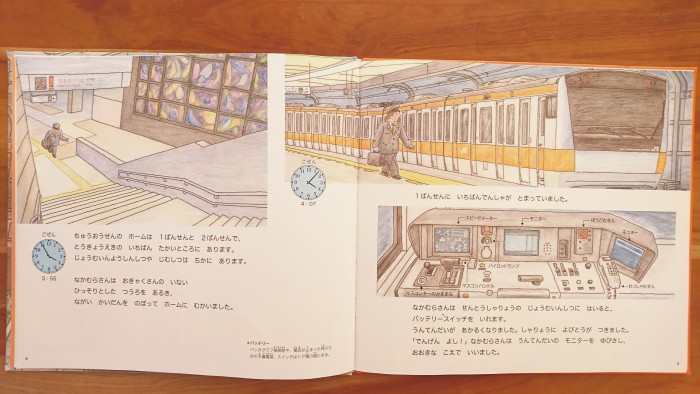 ごぜん
3:55
ちゅうおうせんの ホームは 1ばんせんと 2ばんせんで、
とうきょうえきの いちばん たかいところに あります。
じょうむいんようしんしつや じむしつは ちかに あります。
なかむらさんは おきゃくさんの いない
ひっそりとした つうろを あるき、
ながい かいだんを のぼって ホームに むかいました。
ごぜん
4:07
*バッテリー
パンタグラフ
1ばんせんに いちばんでんしゃが とまっていました。
スピードメーター
モニター
ぼうごむせん
モニター
パイロットランプ
マスコンハンドル
マスコンキー
れっしゃむせん
なかむらさんは せんとうしゃりょうの じょうむいんしつに はいると、
バッテリースイッチを いれます。
うんてんだいが あかるくなりました。しゃりょうに よびとうが つきました。
「でんげん よし!」なかむらさんは うんてんだいの モニターを ゆびさし、
おおきな こえで いいました。